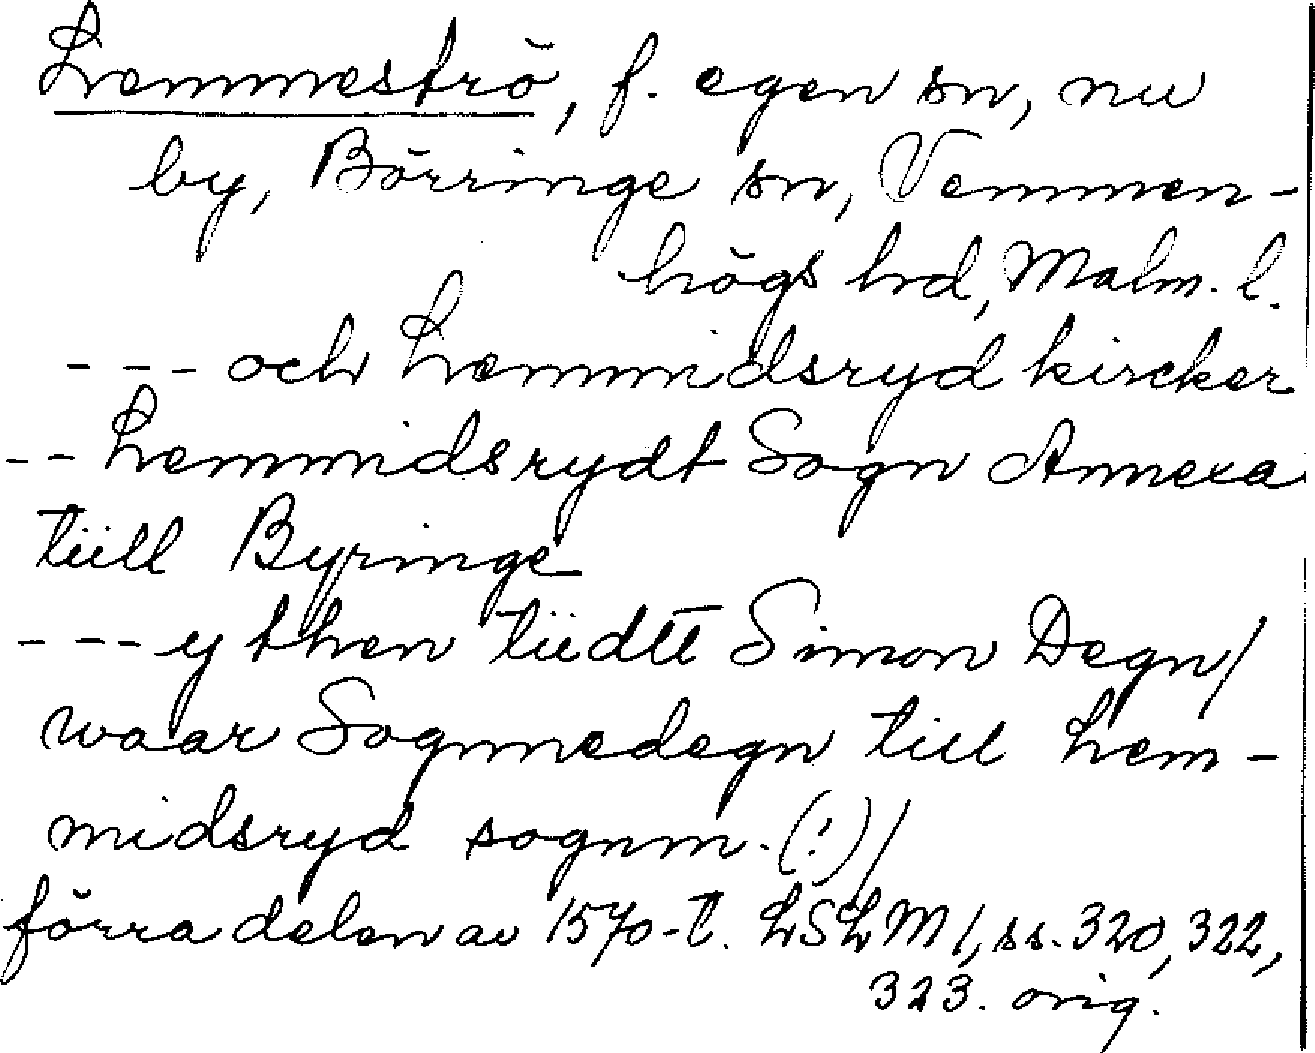 Lemmeströ, f. egen sn, nu
by, Börringe sn, Vemmen-
högs hd, Malm. l.
--- och Lemmidsryd kircker
-- Lemmidsrydt Sogn Annexa
tiill Byringe
--- y then tiidtt Simon Degn/
waar Sognnedegn till Lem-
midsryd sognm. (!)/
förra delen av 1570-t. LSLM 1, ss. 320, 322,
323. orig.